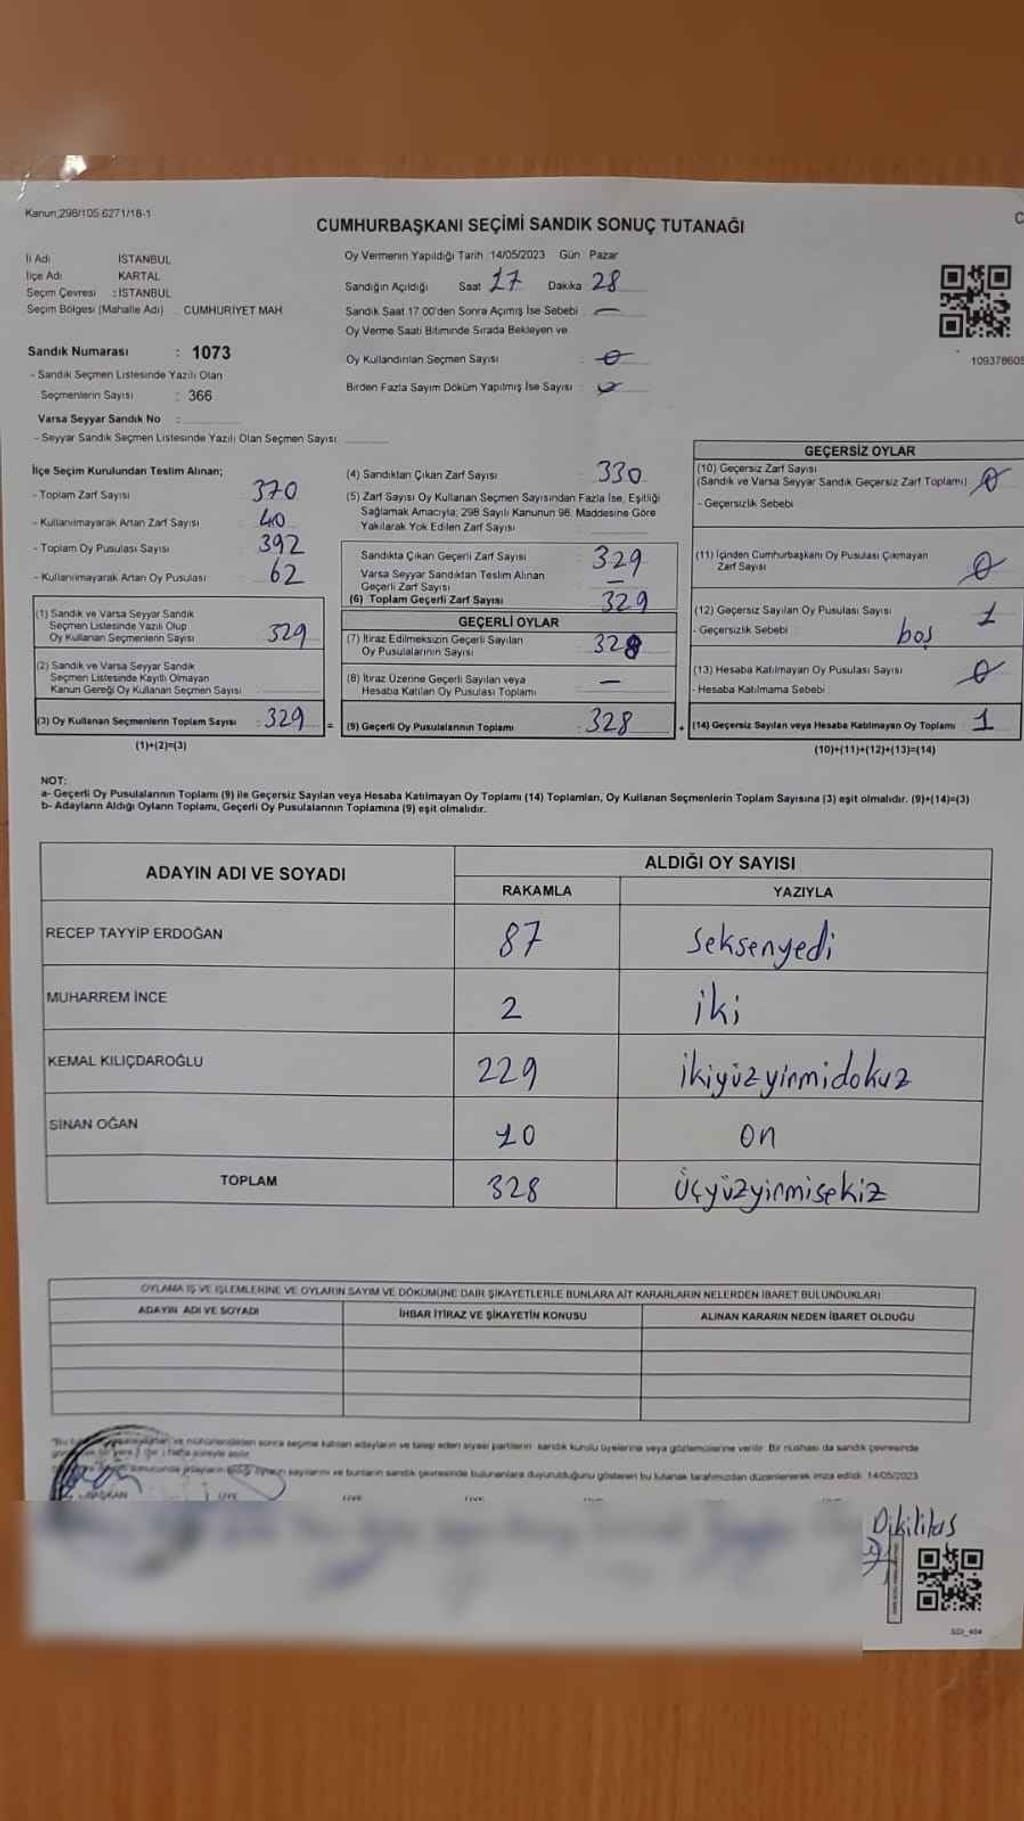 Kanun;298/105 6271/18-1
CUMHURBAŞKANI SEÇİMİ SANDIK SONUÇ TUTANAĞI
C
İl Adı İSTANBUL
İlçe Adı KARTAL
Seçim Çevresi : İSTANBUL
Seçim Bölgesi (Mahalle Adı) CUMHURİYET MAH
Oy Vermenin Yapıldığı Tarih 14/05/2023 Gün Pazar
Sandığın Açıldığı Saat 17 Dakika 28
Sandık Saat 17 00'den Sonra Açılmış İse Sebebi —
Oy Verme Saati Bitiminde Sırada Bekleyen ve
Oy Kullandırılan Seçmen Sayısı : 0
Birden Fazla Sayım Döküm Yapılmış İse Sayısı : 0
109378605
Sandık Numarası : 1073
- Sandık Seçmen Listesinde Yazılı Olan
Seçmenlerin Sayısı : 366
Varsa Seyyar Sandık No :
- Seyyar Sandık Seçmen Listesinde Yazılı Olan Seçmen Sayısı
İlçe Seçim Kurulundan Teslim Alınan;
- Toplam Zarf Sayısı 370
- Kullanılmayarak Artan Zarf Sayısı 40
- Toplam Oy Pusulası Sayısı 392
- Kullanılmayarak Artan Oy Pusulası 62
(1) Sandık ve Varsa Seyyar Sandık
Seçmen Listesinde Yazılı Olup
Oy Kullanan Seçmenlerin Sayısı 329
(2) Sandık ve Varsa Seyyar Sandık
Seçmen Listesinde Kayıtlı Olmayan
Kanun Gereği Oy Kullanan Seçmen Sayısı
(3) Oy Kullanan Seçmenlerin Toplam Sayısı : 329 =
(1)+(2)=(3)
(4) Sandıktan Çıkan Zarf Sayısı : 330
(5) Zarf Sayısı Oy Kullanan Seçmen Sayısından Fazla İse, Eşitliği
Sağlamak Amacıyla; 298 Sayılı Kanunun 98. Maddesine Göre
Yakılarak Yok Edilen Zarf Sayısı
Sandıkta Çıkan Geçerli Zarf Sayısı : 329
Varsa Seyyar Sandıktan Teslim Alınan
Geçerli Zarf Sayısı —
(6) Toplam Geçerli Zarf Sayısı 329
GEÇERLİ OYLAR
(7) İtiraz Edilmeksizin Geçerli Sayılan
Oy Pusulalarının Sayısı 328
(8) İtiraz Üzerine Geçerli Sayılan veya
Hesaba Katılan Oy Pusulası Toplamı —
(9) Geçerli Oy Pusulalarının Toplamı 328 +
GEÇERSİZ OYLAR
(10) Geçersiz Zarf Sayısı
(Sandık ve Varsa Seyyar Sandık Geçersiz Zarf Toplamı) 0
- Geçersizlik Sebebi
(11) İçinden Cumhurbaşkanı Oy Pusulası Çıkmayan
Zarf Sayısı 0
(12) Geçersiz Sayılan Oy Pusulası Sayısı 1
- Geçersizlik Sebebi boş
(13) Hesaba Katılmayan Oy Pusulası Sayısı 0
- Hesaba Katılmama Sebebi
(14) Geçersiz Sayılan veya Hesaba Katılmayan Oy Toplamı 1
(10)+(11)+(12)+(13)=(14)
NOT:
a- Geçerli Oy Pusulalarının Toplamı (9) ile Geçersiz Sayılan veya Hesaba Katılmayan Oy Toplamı (14) Toplamları, Oy Kullanan Seçmenlerin Toplam Sayısına (3) eşit olmalıdır. (9)+(14)=(3)
b- Adayların Aldığı Oyların Toplamı, Geçerli Oy Pusulalarının Toplamına (9) eşit olmalıdır.
ADAYIN ADI VE SOYADI ALDIĞI OY SAYISI
RAKAMLA YAZIYLA
RECEP TAYYİP ERDOĞAN 87 Seksenyedi
MUHARREM İNCE 2 iki
KEMAL KILIÇDAROĞLU 229 ikiyüzyirmidokuz
SİNAN OĞAN 10 on
TOPLAM 328 Üçyüzyirmisekiz
OYLAMA İŞ VE İŞLEMLERİNE VE OYLARIN SAYIM VE DÖKÜMÜNE DAİR ŞİKAYETLERLE BUNLARA AİT KARARLARIN NELERDEN İBARET BULUNDUKLARI
ADAYIN ADI VE SOYADI İHBAR İTİRAZ VE ŞİKAYETİN KONUSU ALINAN KARARIN NEDEN İBARET OLDUĞU
sonra seçime katılan adayların ve talep eden siyasi partilerin sandık kurulu üyelerine veya gözlemcilerine verilir. Bir nüshası da sandık çevresinde
sayılarını ve bunların sandık çevresinde bulunanlara duyurulduğunu gösteren bu tutanak tarafımızdan düzenlenerek imza edildi. 14/05/2023
BAŞKAN ÜYE ÜYE ÜYE
Dikilitaş